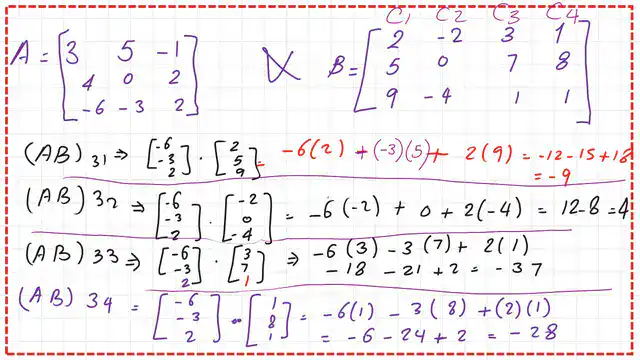 C1 C2 C3 C4
A = [3 5 -1
4 0 2
-6 -3 2]
B = [2 -2 3 1
5 0 7 8
9 -4 1 1]
(AB) 31 ⇒ [-6 -3 2] · [2 5 9] = -6(2) + (-3)(5) + 2(9) = -12-15+18
= -9
(AB) 32 ⇒ [-6 -3 2] · [-2 0 -4] = -6(-2) + 0 + 2(-4) = 12-8 = 4
(AB) 33 ⇒ [-6 -3 2] · [3 7 1] ⇒ -6(3) - 3(7) + 2(1)
-18 - 21 + 2 = -37
(AB) 34 = [-6 -3 2] · [1 8 1] = -6(1) - 3(8) + (2)(1)
= -6 - 24 + 2 = -28